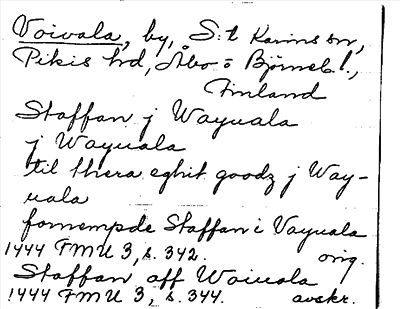 Voivala, by, S:t Karins sn,
Pikis hd, Åbo o Björneb. l.,
Finland
Staffan j Wayuala
j Wayuala
til thera eghit goodz j Way-
uala
fornempde Staffan i Vayuala
1444 FMU 3, s. 342. orig.
Staffan aff Woiuala
1444 FMU 3, s. 344. avskr.